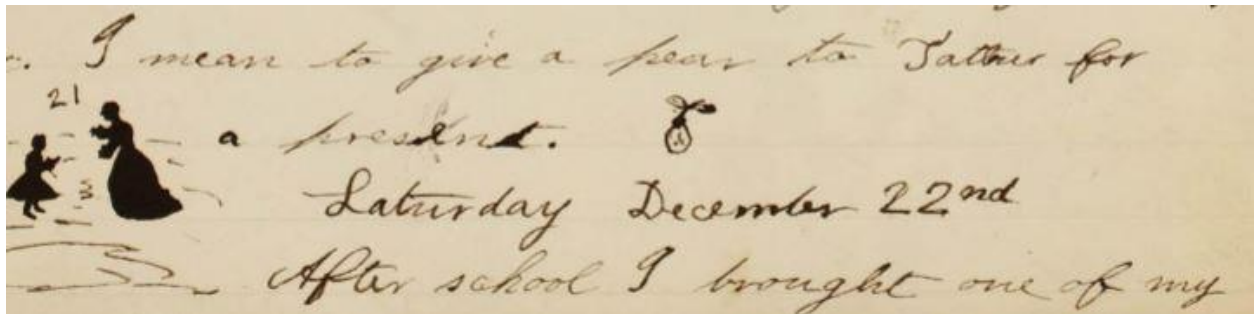 c. I mean to give a pear to Father for
21
a present.
Saturday December 22nd
After school I brought one of my